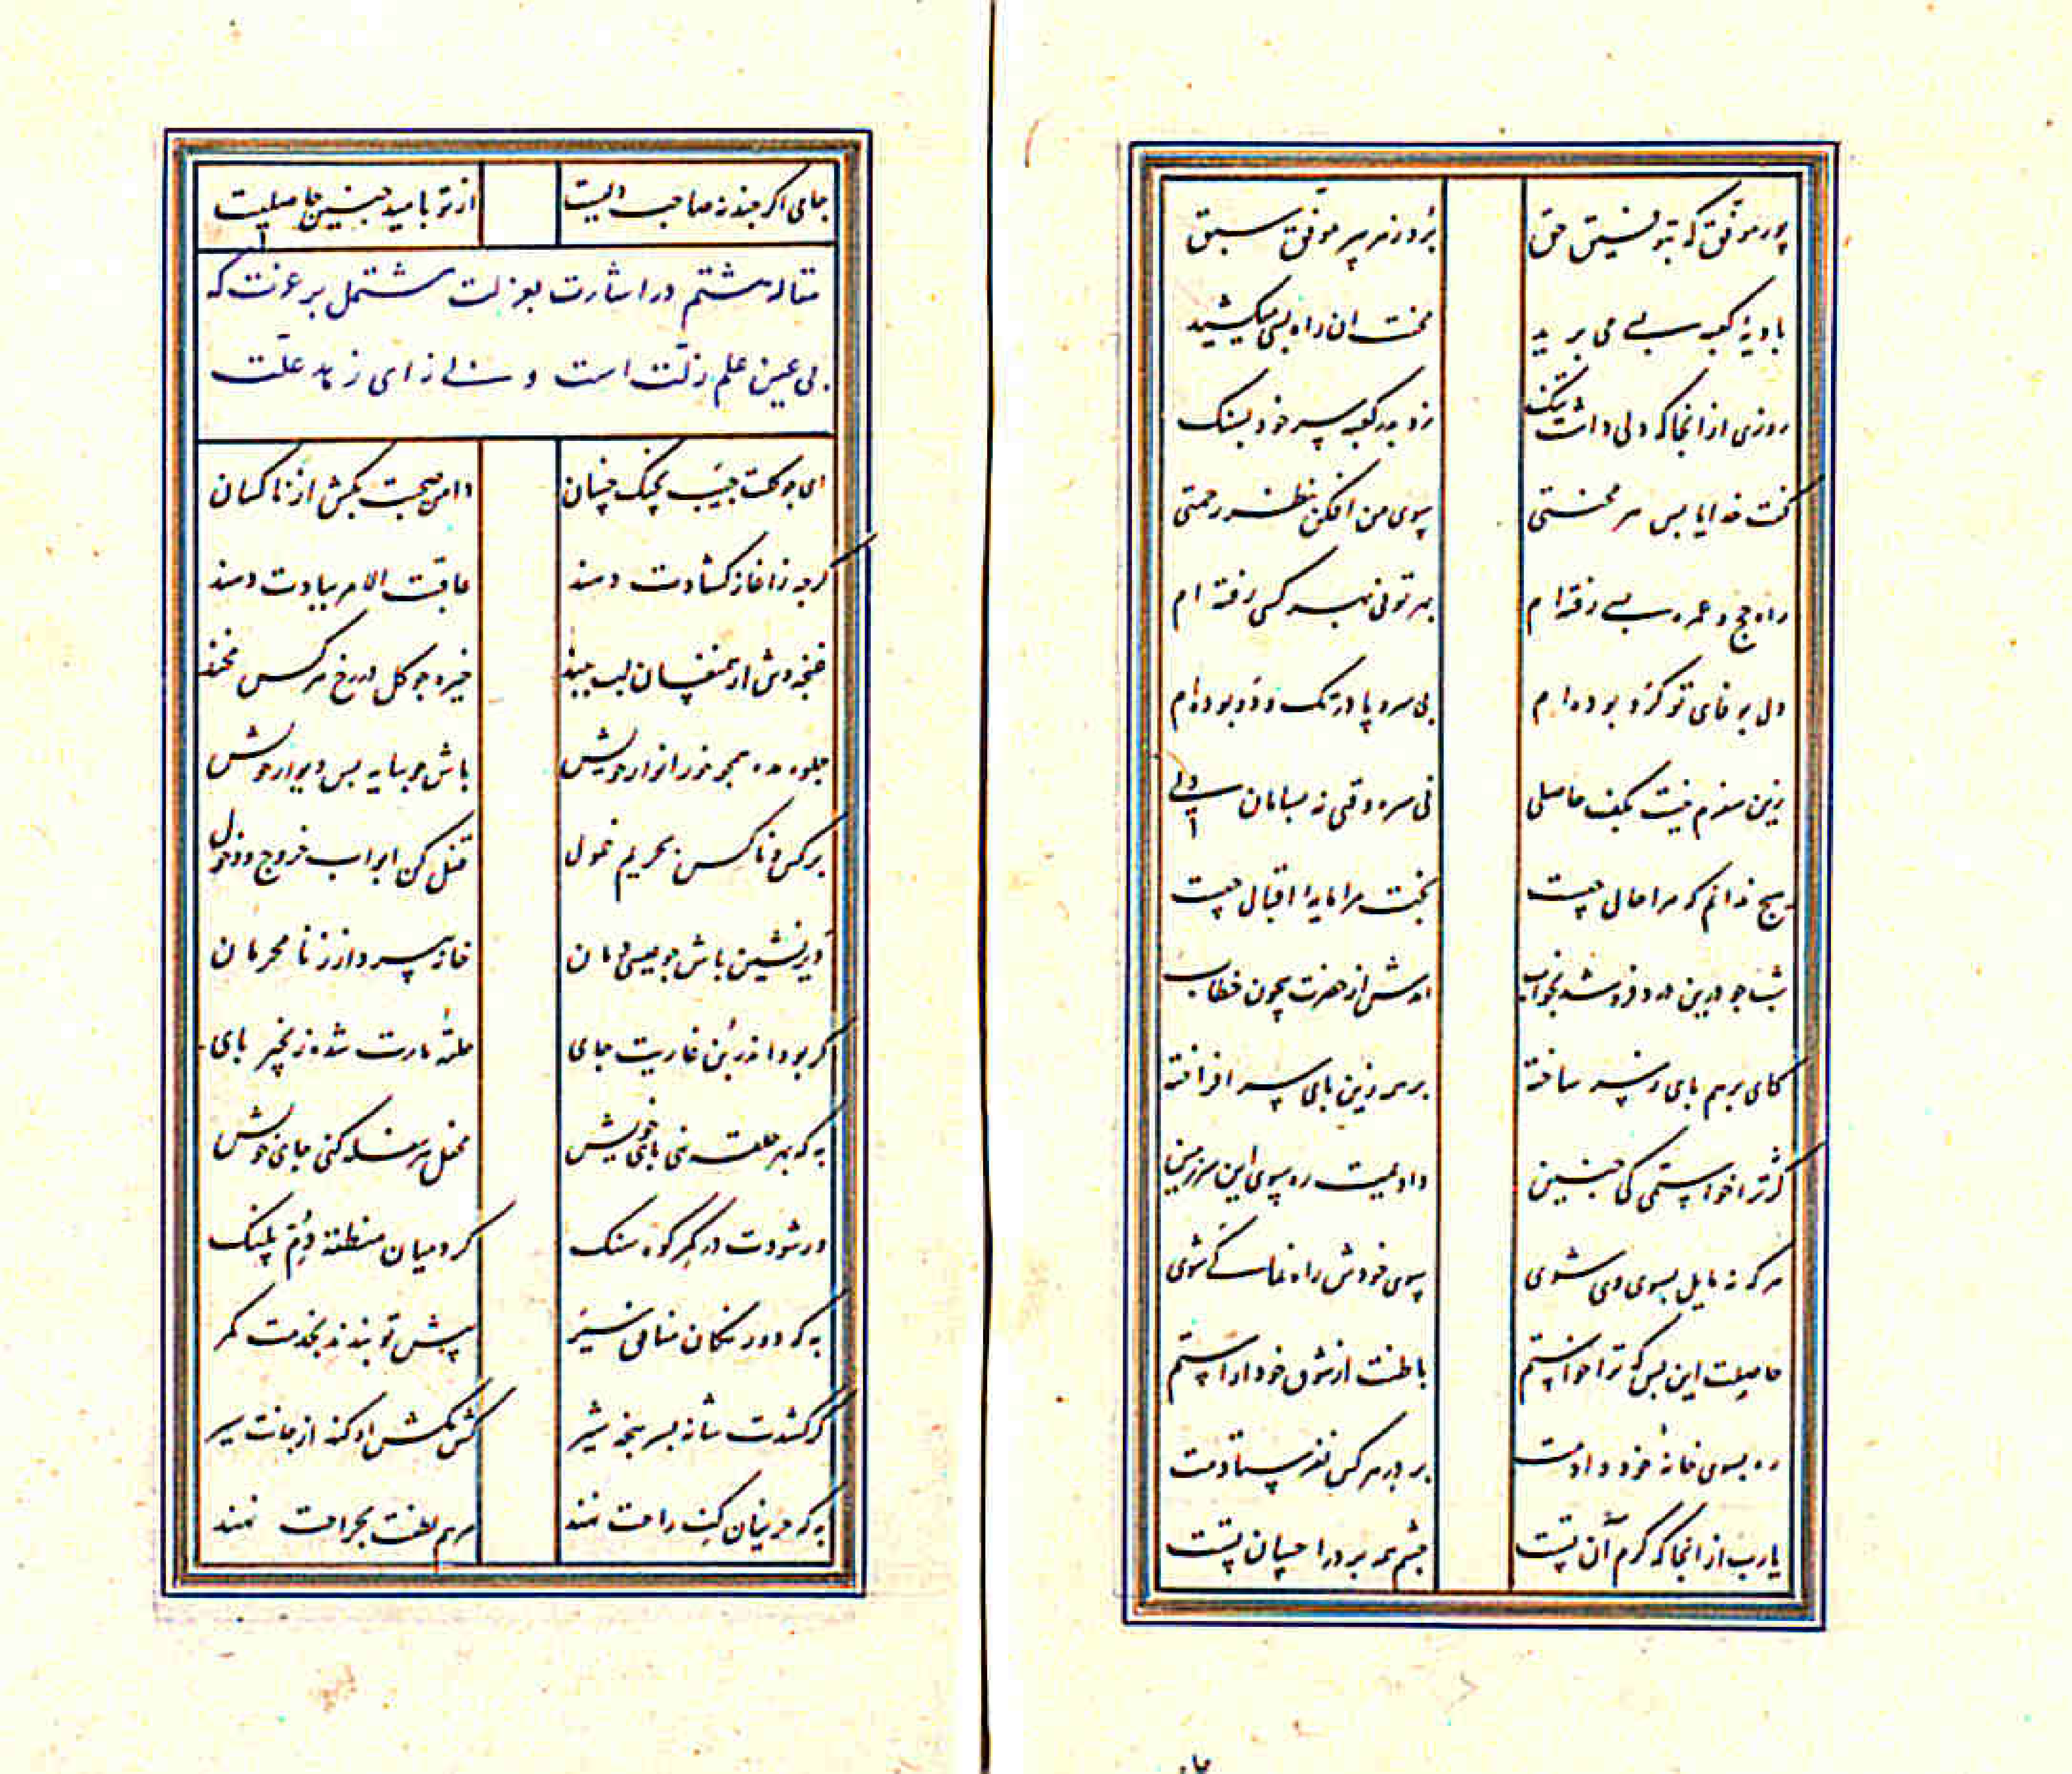 پور موفق که بتوفیق حق برد ز هر پیر موفق سبق
بادیهٔ کعبه بسی می برید محنت ان راه بسی میکشید
روزی از انجا که دلی داشت تنک زد بدر کعبه سر خود بسنک
کفت خدایا پس هر محنتی سوی من افکن نظر رحمتی
راه حج و عمره بسی رفته ام بهر تو نی بهر کسی رفته ام
دل بوفای تو کرو بوده ام بی سر و پا در تک و دو بوده ام
زین سفرم نیست بکف حاصلی نی سره وقتی نه بسامان دلی
هیچ ندانم که مرا حال چیست بخت مرا مایهٔ اقبال چیست
شب چو درین درد فرو شد بخواب امدش از حضرت بیچون خطاب
کای برهم پای ز سر ساخته بر سر ازین پای سر افراخته
کر نه ترا خواستمی کی چنین دادمیت ره سوی این سرزمین
هر که نه مایل بسوی وی شوی سوی خودش راه نما کی شوی
حاصلت این بس که ترا خواستم باطنت از شوق خود اراستم
ره بسوی خانهٔ خود دادمت بر در هر کس نفرستادمت
یارب از انجا که کرم آن تست چشم همه بر در احسان تست
جامی اکر چند نه صاحب دلیست از تو بامید چنین حاصلیست
مقاله هشتم در اشارت بعزلت مشتمل بر عزت که
بی عین علم زلت است و بی زای زهد علت
ای چو کلت جیب بچنک خسان دامن صحبت بکش از ناکسان
کرچه ز اغاز کشادت دهند عاقبت الامر ببادت دهند
غنچه وش از همنفسان لب ببند خیره چو کل در رخ هر کس مخند
جلوه مده همچو خور انوار خویش باش چو سایه پس دیوار خویش
بر کس و ناکس بحریم خمول قفل کن ابواب خروج و دخول
دیر نشین باش چو عیسی دمان خانه بپرداز ز نامحرمان
کر بود اندر بن غاریت جای حلقهٔ مارت شده زنجیر پای
به که بهر حلقه نهی پای خویش محفل هر سفله کنی جای خویش
ور شودت در کمر کوه سنک کرد میان منطقه دم پلنک
به که دو رنکان منافق سیر پیش تو بندند بخدمت کمر
کر کشدت شانه بسر پنجه شیر کش مکش او کند از جانت سیر
به که حریفان کف راحت نهند مرهم لطفت بجراحت نهند